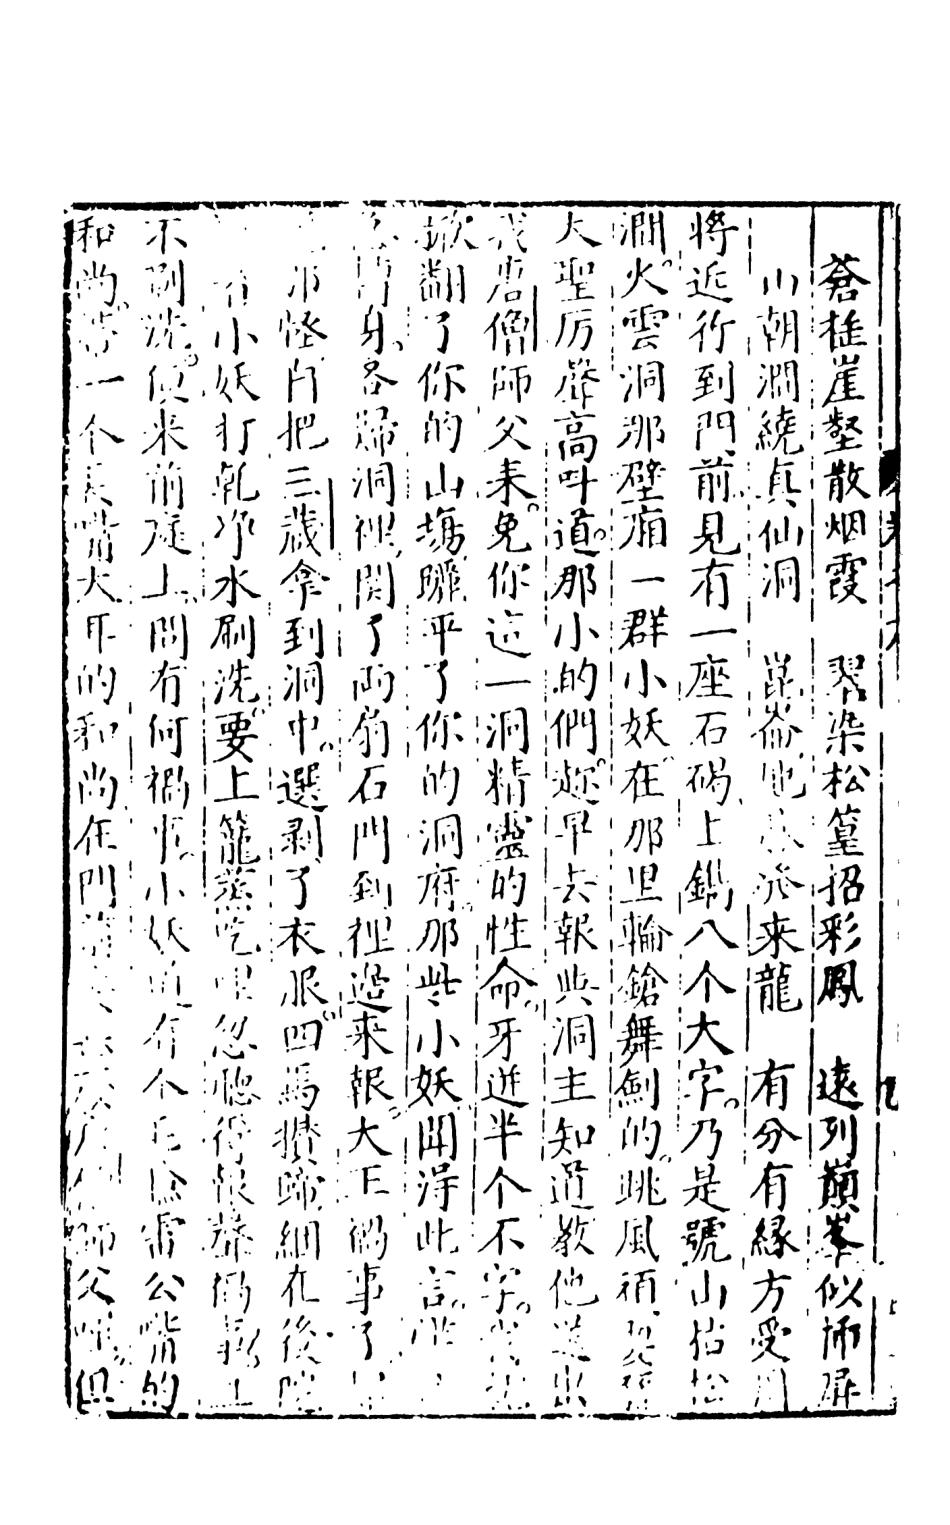 蒼搖崖壑散烟霞　翠染松篁招彩鳳　遠列巔峯似插屏
山朝澗繞真仙洞　崑崙地脉發來龍　有分有緣方受用
將近行到門前見有一座石碣上鐫八个大字乃是號山枯松
澗火雲洞那壁廂一群小妖在那里輪鎗舞劍的跳風頑耍孫
大聖厉聲高呌道那小的們趂早去報與洞主知道教他送出
我唐僧師父來免你這一洞精靈的性命牙迸半个不字
掀翻了你的山塲躧平了你的洞府那些小妖聞得此言
身各歸洞裡関了兩扇石門到裡邉来報大王禍事了
那怪自把三藏拿到洞中選剥了衣服四馬攢蹄綑在後院
着小妖打乾净水刷洗要上籠蒸吃哩忽聽得報聲禍事
不刷洗便来前庭上問有何禍事小妖道有个毛臉雷公嘴的
和尚帶一个長嘴大耳的和尚在門前要甚麽唐僧師父哩但